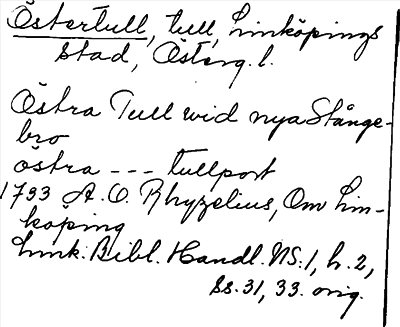 Östertull, tull, Linköpings
stad, Österg. l.
Östra Tull wid nya Stånge-
bro
östra --- tullport
1733 A. O. Rhyzelius, Om Lin-
köping
Link. Bibl. Handl. NS: 1, h. 2,
ss. 31, 33. orig.